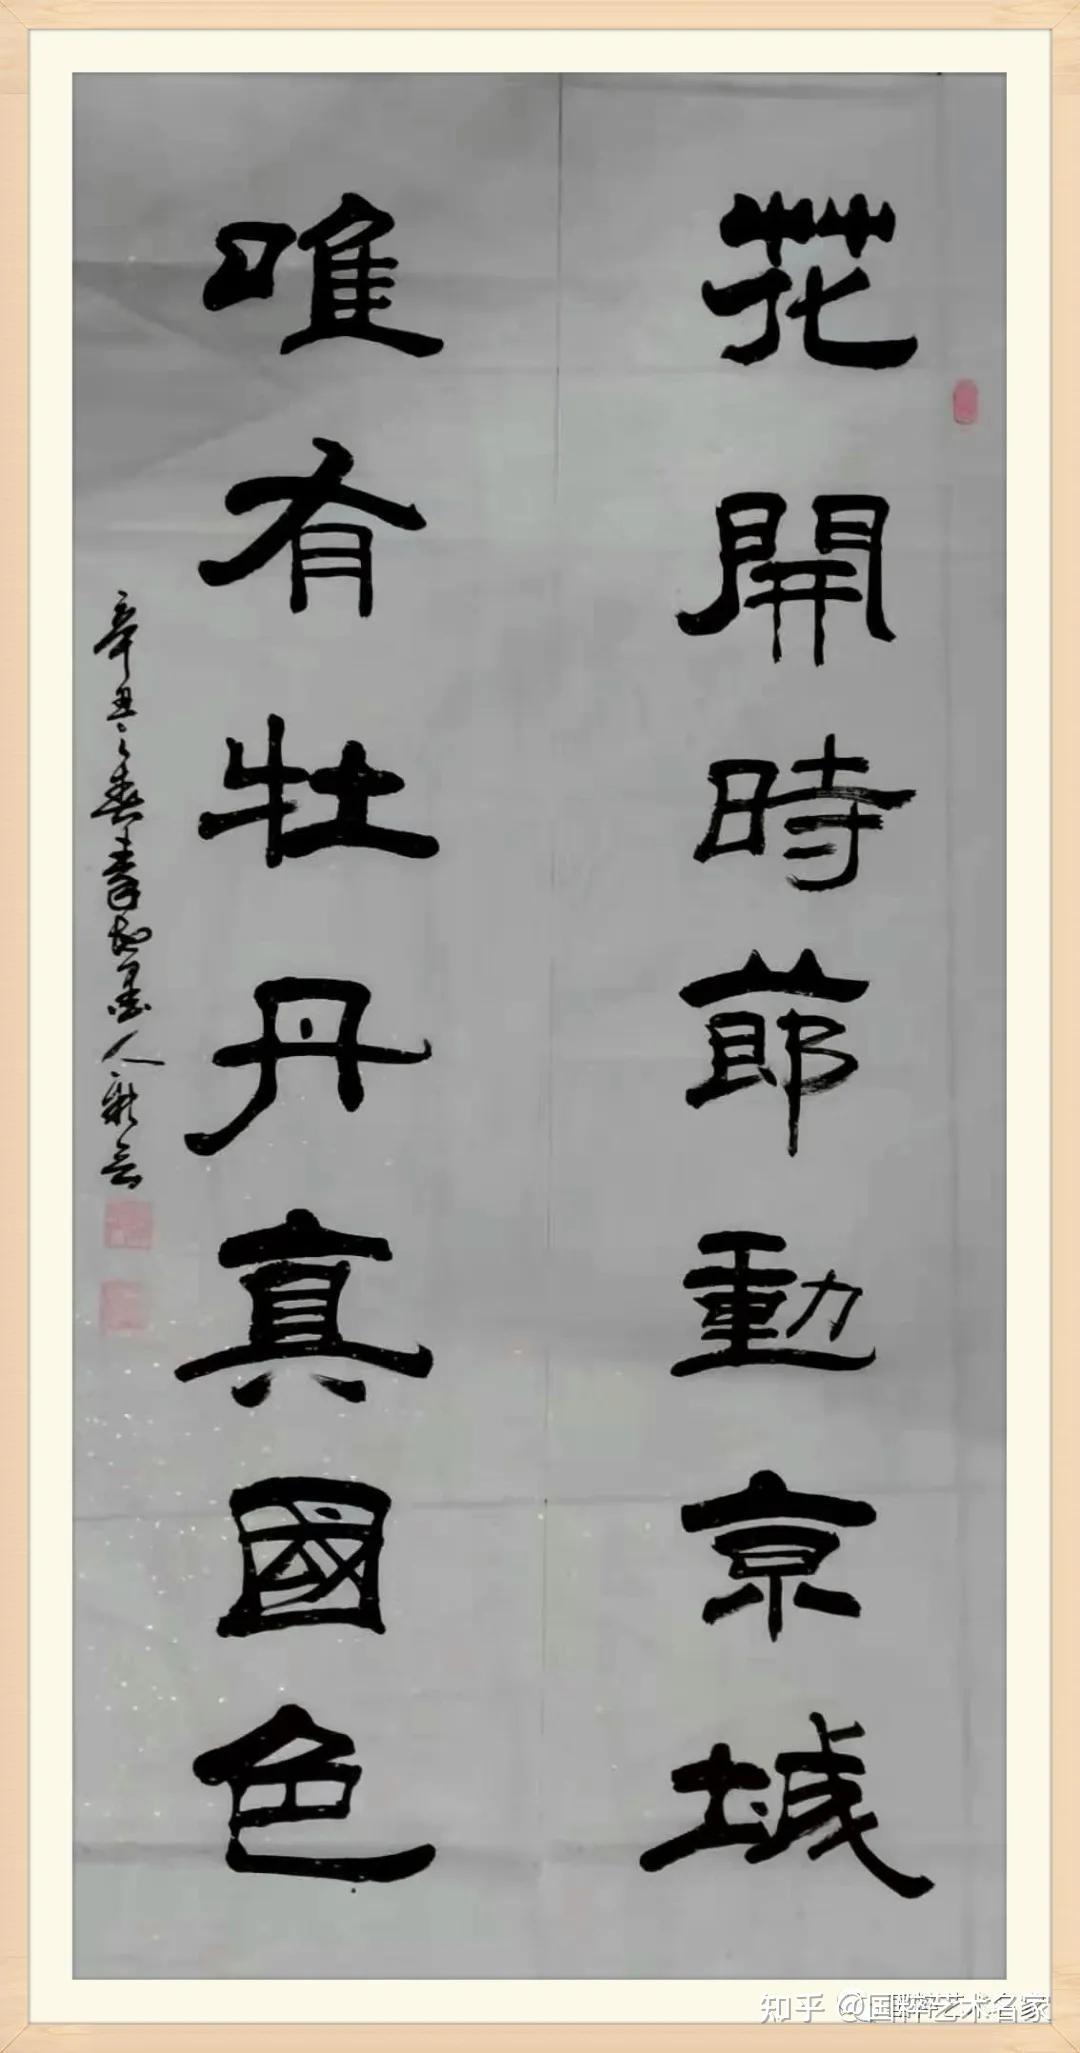 花開時節動京城
唯有牡丹真國色
辛丑之春
知乎 @国粹艺术名家